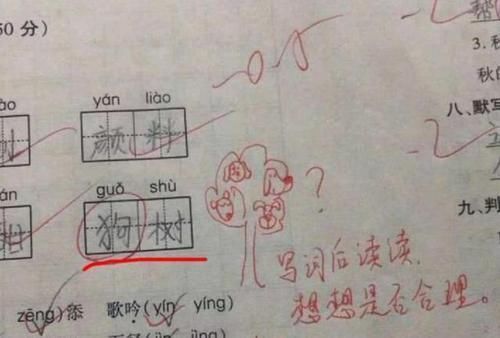 50 分）
3. 秋
秋的
ào yán liào
颜料
八、默写
án guǒ shù
狗树
？
写词后读读，
想想是否合理。
九、判
zēng)添 歌吟(yín yíng)